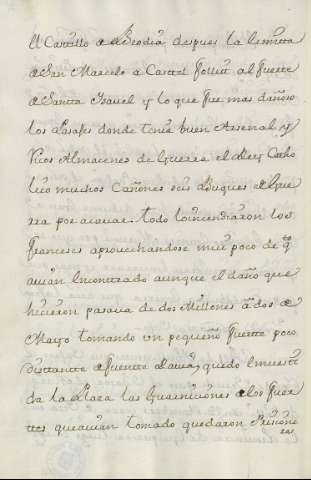 el Castillo de Beodia, despues la Ermitta
de San Marcelo a Castel follit al fuerte
de Santta Isavel y lo que fue mas dañoso
los Pasajes donde tenia buen Arsenal y
ricos Almacenes de Guerra el Rey Catho
lico muchos Cañones seis Buques de Gue
rra por acavar. todo lo incendiaron los
franceses aprovechandose mui poco de q.
avian Encontrado aunque el daño que
hicieron pasava de dos Millones a dos de
Mayo tomando un pequeño fuerte poco
disttante de fuentte Laravia, quedo Envesti
da la Plaza las Guarniciones de los fuer
ttes que avian tomado quedaron Prisione
ras